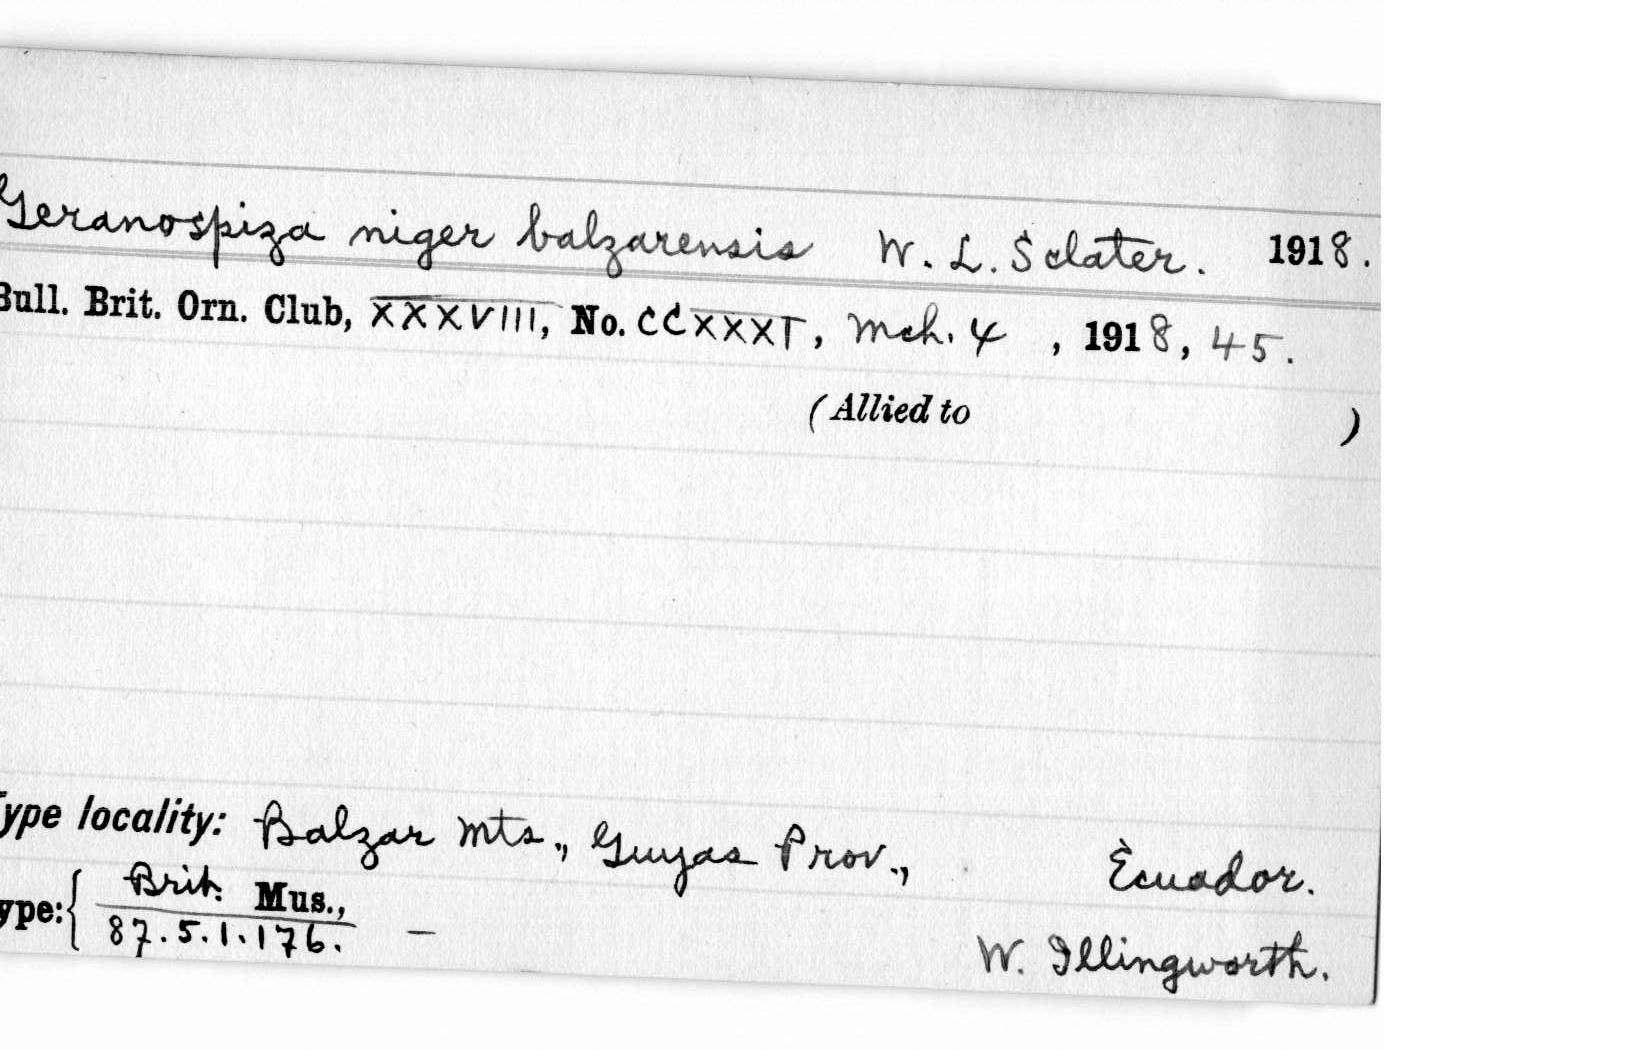 Geranospiza niger balzarensis W. L. Sclater. 1918.
Bull. Brit. Orn. Club, XXXVIII, No. CCXXXI, Mch. 4, 1918, 45.
(Allied to )
Type locality: Balzar Mts., Guyas Prov., Ecuador.
Type: { Brit. Mus.,
87.5.1.176. — W. Illingworth.